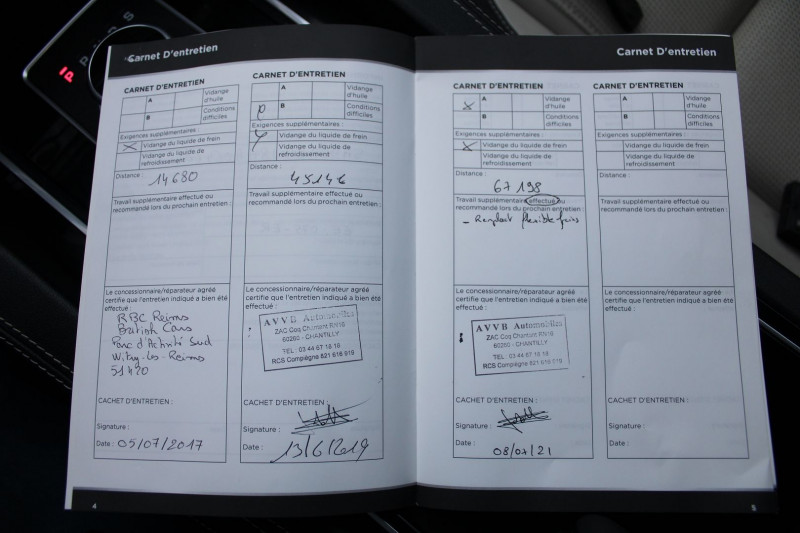 P R N D S
Carnet D'entretien
CARNET D'ENTRETIEN
A
Vidange
d'huile
B
Conditions
difficiles
Exigences supplémentaires :
Vidange du liquide de frein
Vidange du liquide de
refroidissement
Distance :
14680
Travail supplémentaire effectué ou
recommandé lors du prochain entretien :
Le concessionnaire/réparateur agréé
certifie que l'entretien indiqué a bien été
effectué :
RBC Reims
British Cars
Parc d'Activité Sud
Witry-les-Reims
51420
CACHET D'ENTRETIEN :
Signature :
Date : 05/07/2017
4
CARNET D'ENTRETIEN
A
Vidange
d'huile
B
Conditions
difficiles
Exigences supplémentaires :
Vidange du liquide de frein
Vidange du liquide de
refroidissement
Distance :
45146
Travail supplémentaire effectué ou
recommandé lors du prochain entretien :
Le concessionnaire/réparateur agréé
certifie que l'entretien indiqué a bien été
effectué :
AVVB Automobiles
ZAC Coq Chantant RN16
60260 - CHANTILLY
TEL : 03 44 67 18 18
RCS Compiègne 821 616 019
CACHET D'ENTRETIEN :
Signature :
Date : 13/6/2019
Carnet D'entretien
CARNET D'ENTRETIEN
A
Vidange
d'huile
B
Conditions
difficiles
Exigences supplémentaires :
Vidange du liquide de frein
Vidange du liquide de
refroidissement
Distance :
67198
Travail supplémentaire effectué ou
recommandé lors du prochain entretien :
flexible freins
Le concessionnaire/réparateur agréé
certifie que l'entretien indiqué a bien été
effectué :
AVVB Automobiles
ZAC Coq Chantant RN16
60260 - CHANTILLY
TEL : 03 44 67 18 18
RCS Compiègne 821 616 019
CACHET D'ENTRETIEN :
Signature :
Date : 08/07/21
CARNET D'ENTRETIEN
A
Vidange
d'huile
B
Conditions
difficiles
Exigences supplémentaires :
Vidange du liquide de frein
Vidange du liquide de
refroidissement
Distance :
Travail supplémentaire effectué ou
recommandé lors du prochain entretien :
Le concessionnaire/réparateur agréé
certifie que l'entretien indiqué a bien été
effectué :
CACHET D'ENTRETIEN :
Signature :
Date :
5